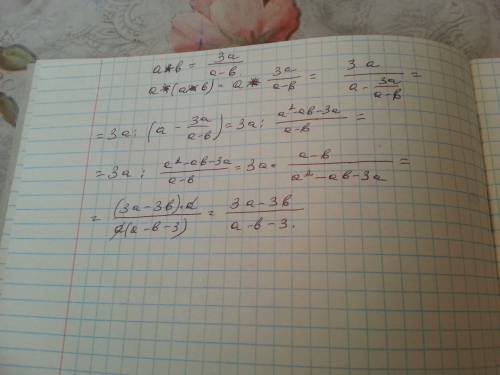 a*b = 3a/(a-b)
a*(a*b) = a * 3a/(a-b) = 3a/(a - 3a/(a-b)) =
= 3a : (a - 3a/(a-b)) = 3a : (a²-ab-3a)/(a-b) =
= 3a : (a²-ab-3a)/(a-b) = 3a · (a-b)/(a²-ab-3a) =
= (3a-3b)·a/(a(a-b-3)) = (3a-3b)/(a-b-3).